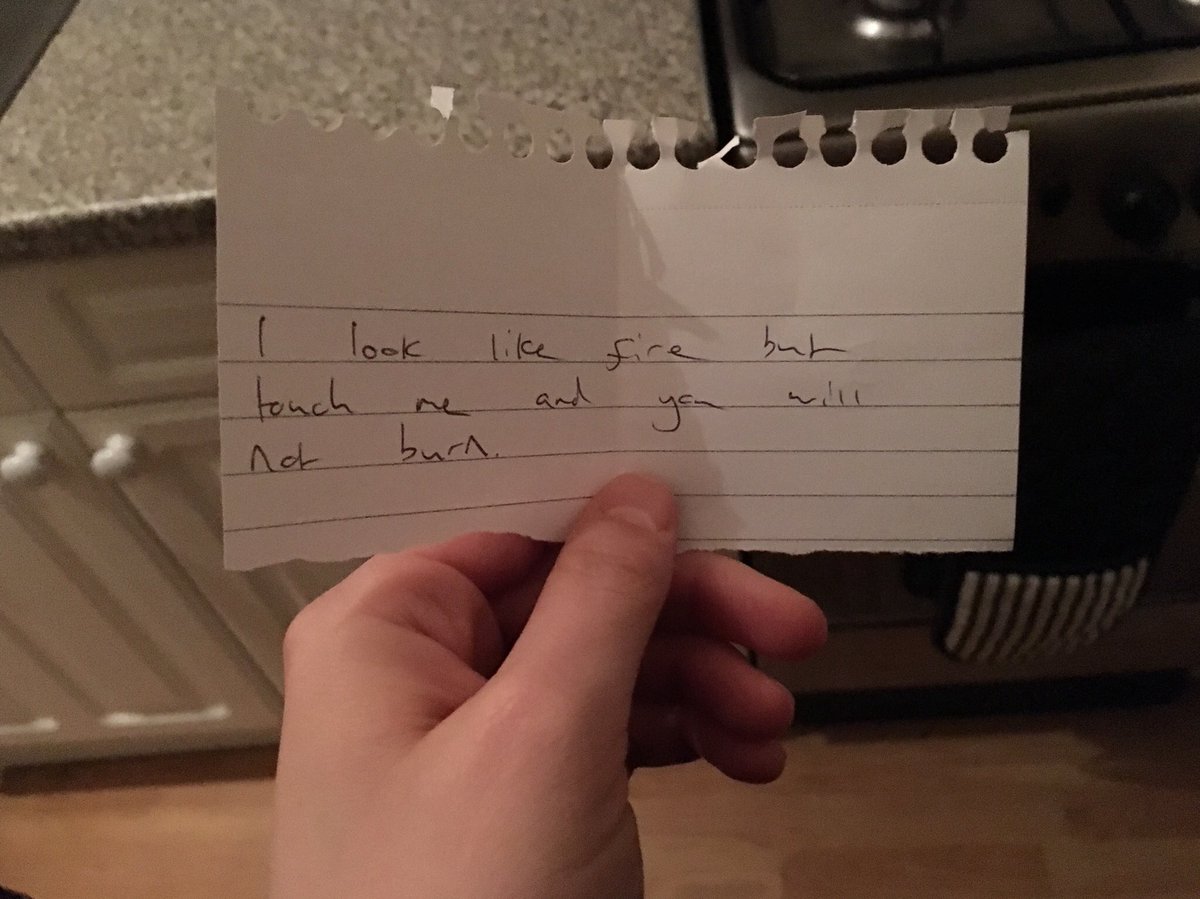 I look like fire but
touch me and you will
not burn.